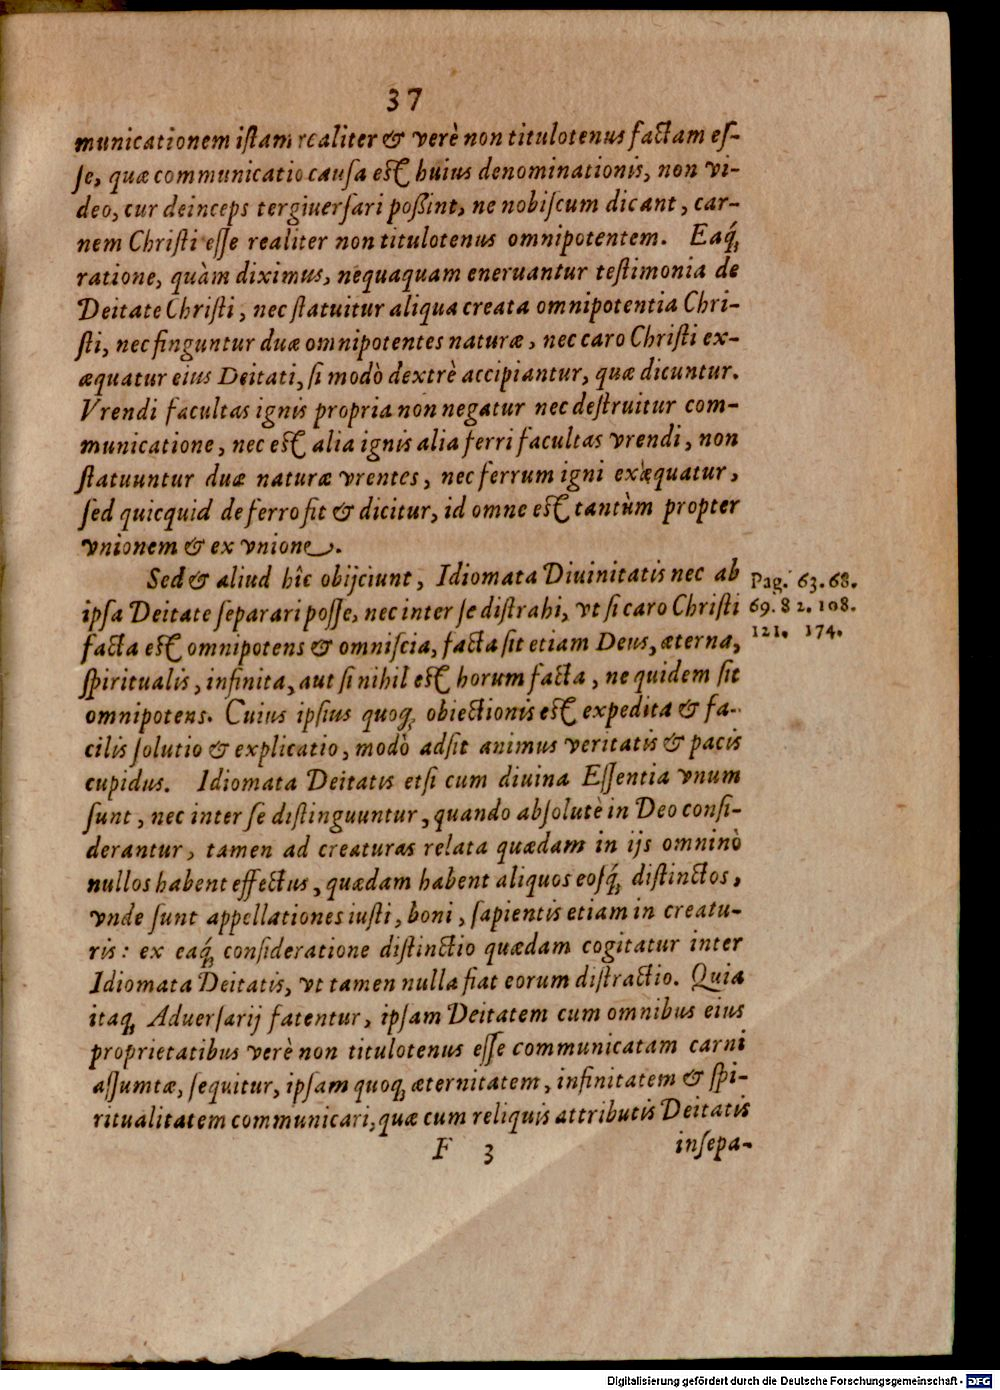 37
municationem iſtam realiter & verè non titulotenus factam eſ-
ſe, quæ communicatio cauſa eſt huius denominationis, non vi-
deo, cur deinceps tergiuerſari poßint, ne nobiſcum dicant, car-
nem Chriſti eſſe realiter non titulotenus omnipotentem. Eaq́;
ratione, quàm diximus, nequaquam eneruantur teſtimonia de
Deitate Chriſti, nec ſtatuitur aliqua creata omnipotentia Chri-
ſti, nec finguntur duæ omnipotentes naturæ, nec caro Chriſti ex-
æquatur eius Deitati, ſi modò dextrè accipiantur, quæ dicuntur.
Vrendi facultas ignis propria non negatur nec deſtruitur com-
municatione, nec eſt alia ignis alia ferri facultas vrendi, non
ſtatuuntur duæ naturæ vrentes, nec ferrum igni exæquatur,
ſed quicquid de ferro fit & dicitur, id omne eſt tantùm propter
vnionem & ex vnione.
Sed & aliud hîc obijciunt, Idiomata Diuinitatis nec ab
ipſa Deitate ſeparari poſſe, nec inter ſe diſtrahi, vt ſi caro Chriſti
facta eſt omnipotens & omniſcia, facta ſit etiam Deus, æterna,
ſpiritualis, infinita, aut ſi nihil eſt horum facta, ne quidem ſit
omnipotens. Cuius ipſius quoq; obiectionis eſt expedita & fa-
cilis ſolutio & explicatio, modò adſit animus veritatis & pacis
cupidus. Idiomata Deitatis etſi cum diuina Eſſentia vnum
ſunt, nec inter ſe diſtinguuntur, quando abſolutè in Deo conſi-
derantur, tamen ad creaturas relata quædam in ijs omninò
nullos habent effectus, quædam habent aliquos eoſq́; diſtinctos,
vnde ſunt appellationes iuſti, boni, ſapientis etiam in creatu-
ris: ex eaq́; conſideratione diſtinctio quædam cogitatur inter
Idiomata Deitatis, vt tamen nulla fiat eorum diſtractio. Quia
itaq; Aduerſarij fatentur, ipſam Deitatem cum omnibus eius
proprietatibus verè non titulotenus eſſe communicatam carni
aſſumtæ, ſequitur, ipſam quoq; æternitatem, infinitatem & ſpi-
ritualitatem communicari, quæ cum reliquis attributis Deitatis
F 3 inſepa-
Pag. 63. 68.
69. 8 2. 108.
121. 174.
Digitalisierung gefördert durch die Deutsche Forschungsgemeinschaft - DFG